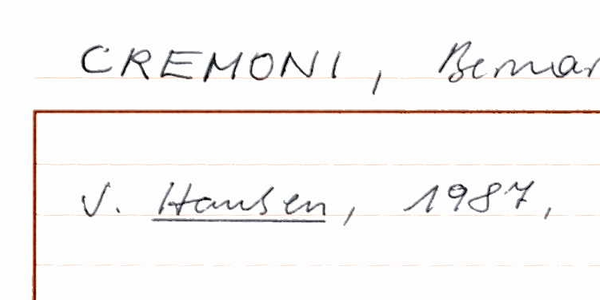 CREMONI, Bernar
V. Hansen, 1987,